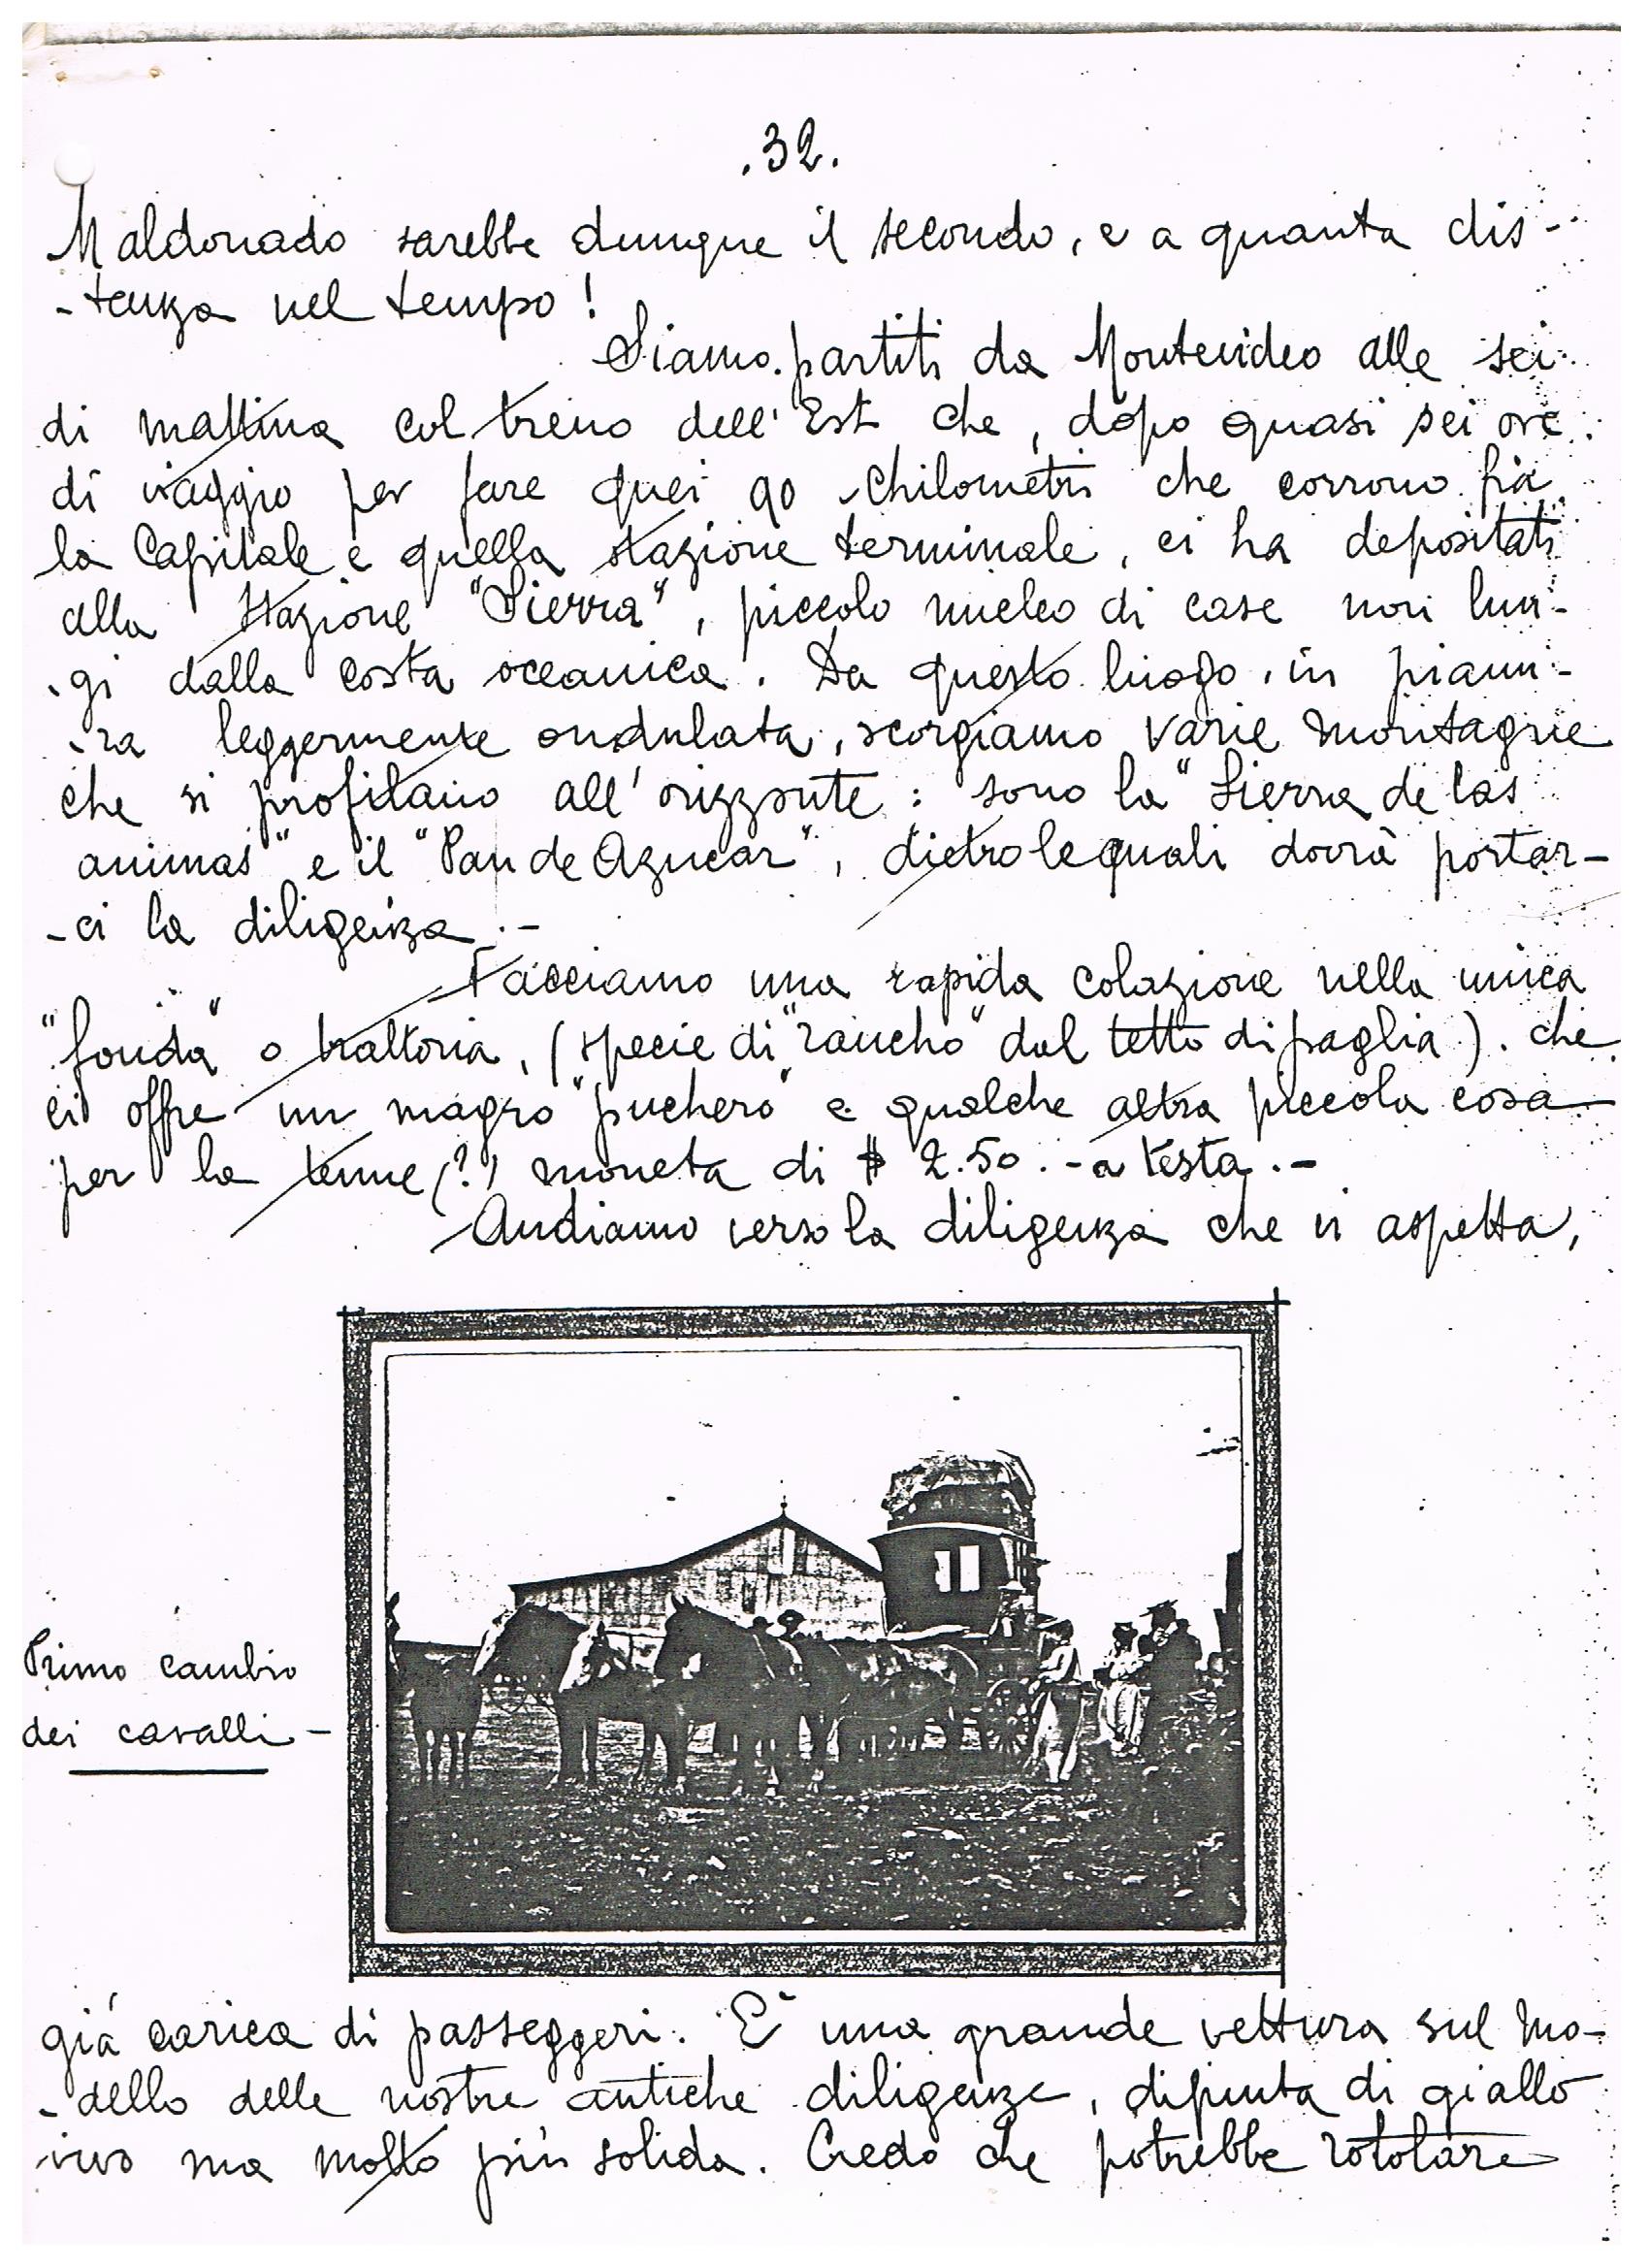 .32.
Maldonado sarebbe dunque il secondo, e a quanta dis-
-tenza nel tempo!
Siamo partiti da Montevideo alle sei
di mattina col treno dell'Est che, dopo quasi sei ore
di viaggio per fare quei 90 chilometri che corrono fra
la Capitale e quella stazione terminale, ci ha depositati
alla stazione "Sierra", piccolo nucleo di case non lun-
-gi dalla costa oceanica. Da questo luogo, in pianu-
-ra leggermente ondulata, scorgiamo varie montagne
che si profilano all'orizzonte: sono la "Sierra de las
animas" e il "Pan de Azucar", dietro le quali dovrà portar-
-ci la diligenza.-
Facciamo una rapida colazione nella unica
"fonda" o trattoria, (specie di "rancho" dal tetto di paglia). che
ci offre un magro "puchero" e qualche altra piccola cosa
per la tenue (?) moneta di $ 2.50.- a testa.-
Andiamo verso la diligenza che ci aspetta,
Primo cambio
dei cavalli-
giá carica di passeggeri. E' una grande vettura sul mo-
-dello delle nostre antiche diligenze, dipinta di giallo
vivo ma molto più solida. Credo che potrebbe rotolare